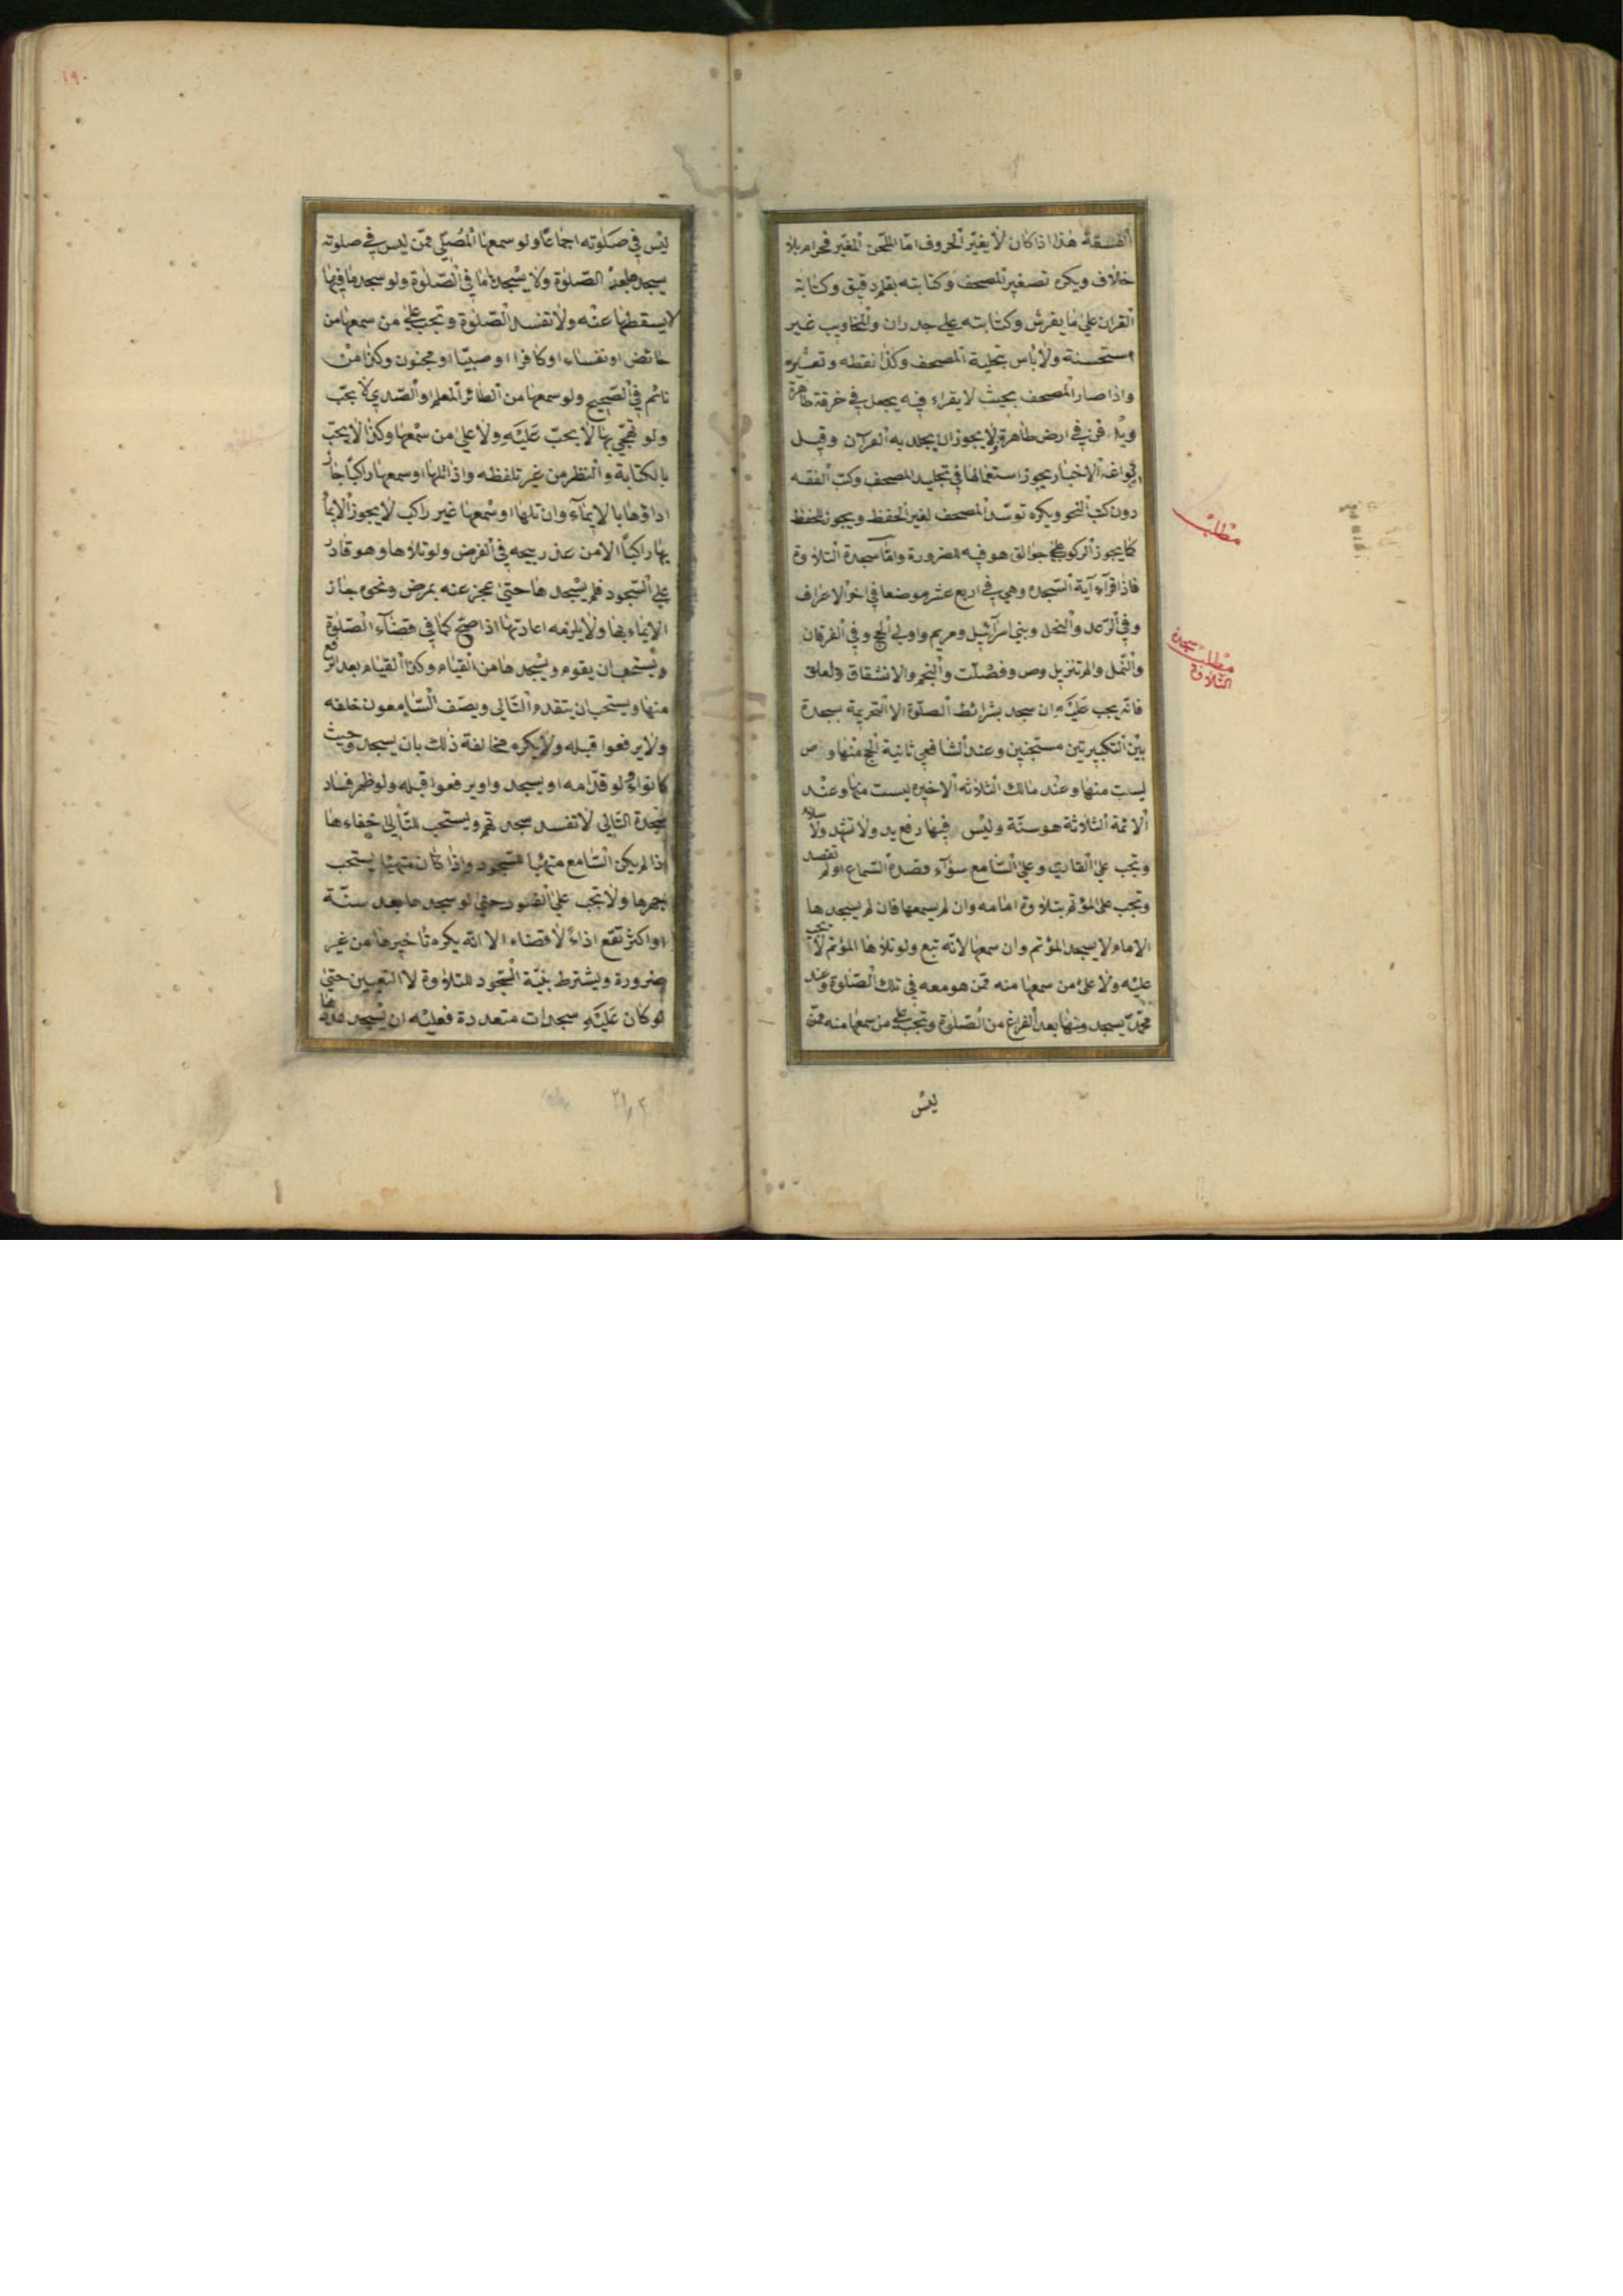 الفسقة هذا اذا كان لا يغيّر الحروف امّا اللحن المغيّر فحرام بلا
خلاف ويكره تصغير المصحف وكتابته بقلم دقيق وكتابة
القران على ما يفرش وكتابته على جدران والمحاريب غير
مستحسنة ولا بأس بتحلية المصحف وكذا نقطه وتعشيره
واذا صار المصحف بحيث لا يقراء فيه يجعل في خرقة طاهرة
ويدفن في ارض طاهرة ولا يجوز ان يجلد به القرآن وقيل
الاخبار يجوز استعمالها في تجليد المصحف وكتب الفقه
دون كتب النحو ويكره توسّد المصحف لغير الحفظ ويجوز للحفظ
كما يجوز الركوب على جوالق هو فيه للضرورة وامّا سجدة التلاوة
فاذا قرآء آية السّجده وهي في اربع عشر موضعا في اخر الاعراف
وفي الرّعد والنحل وبني اسرآئيل ومريم واولى الحج وفي الفرقان
والنّمل والم تنزيل وص وفصّلت والنجم والانشقاق والعلق
فانّه يجب عَليْه ان سجد بشرائط الصلوة الا التحريمة سجدة
بيْن التكبيرتين مستحبّين وعند الشافعي ثانية الحج منْها و ص
ليست منها وعند مالك الثلاثه الاخيره ليست منها وعنْد
الائمّة الثلاثة هو سنّة وليْس فيها رفع يد ولا تشهّد ولا سلام
وتجب على القاري وعلى السّامع سوآء قصده السّماع او لم تقصد
وتجب على المؤتم بتلاوة امامه وان لم يسمعها فان لم يسجد ها
الامام لا يسجد المؤتم وان سمعها لانّه تبع ولو تلاها المؤتم لا تجب
عليْه ولا على من سمعها منه ممّن هو معه في تلك الصّلوة وعند
محمّد يسجد ونها بعد الفراغ من الصّلوة وتجب على من سمعها منه ممّن
ليْس
مطلب
مطلب سجدة
التلاوة
١٩٠
ليْس في صَلوته اجماعًا ولو سمعها المُصلّي ممّن ليس في صلوته
يسجدها بعد الصّلوة ولا يسْجدها في الصّلوة ولو سجدها فيها
لا يسقطها عنْه ولا تفسد الصّلوة وتجب على من سمعها من
حائض او نفساء او كافرا او صبيّا او مجنون وكذا منْ
نائم في الصّحيح ولو سمعها من الطائر المعلم او الصّدي لا يجبّ
ولو تهجّى بها لا يجبّ عَليْه ولا على من سْمعها وكذا لا يجبّ
بالكتابة والنظر من غير تلفظه واذا تلها او سمعها راكبًا جاز
اداؤها بالايمآء وان تلها او سْمعها غير راكب لا يجوز الايما
بها راكبًا الا من عذر يبيحه في الفرض ولو تلاها وهو قادر
على السّجود فلم يسْجد ها حتى عجز عنه بمرض ونحوه جاز
الايماء بها ولا يلزمه اعادتها اذا صحّ كما في قضآء الصّلوة
ويستحب ان يقوم ويسْجد ها من القيام وكذا القيام بعد الرفع
منها ويستحب ان يتقدم التّالي ويصّف السّامعون خلفه
ولا يرفعوا قبله ولا يكره مخالفة ذلك بان يسجد وحيث
كانوا ولو قدّامه او يسجد واويرفعوا قبله ولو ظهر فساد
سجدة التالي لا تفسد سجد تهم ويستحب للتّالي خفاءها
اذا لم يكن السّامع متهيّا للسّجود واذا كان متهيئا يستحب
جهرها ولا تجب على الفور حتى لو سجد ها بعد سنّة
او اكثر تقع اداءً لا قضاء الا انّه يكره تاخيرها من غير
ضرورة ويشترط بنيّة السّجود للتلاوة لا التعيين حتى
لو كان عَليْه سجدات متعددة فعليْه ان يسْجد عدّها